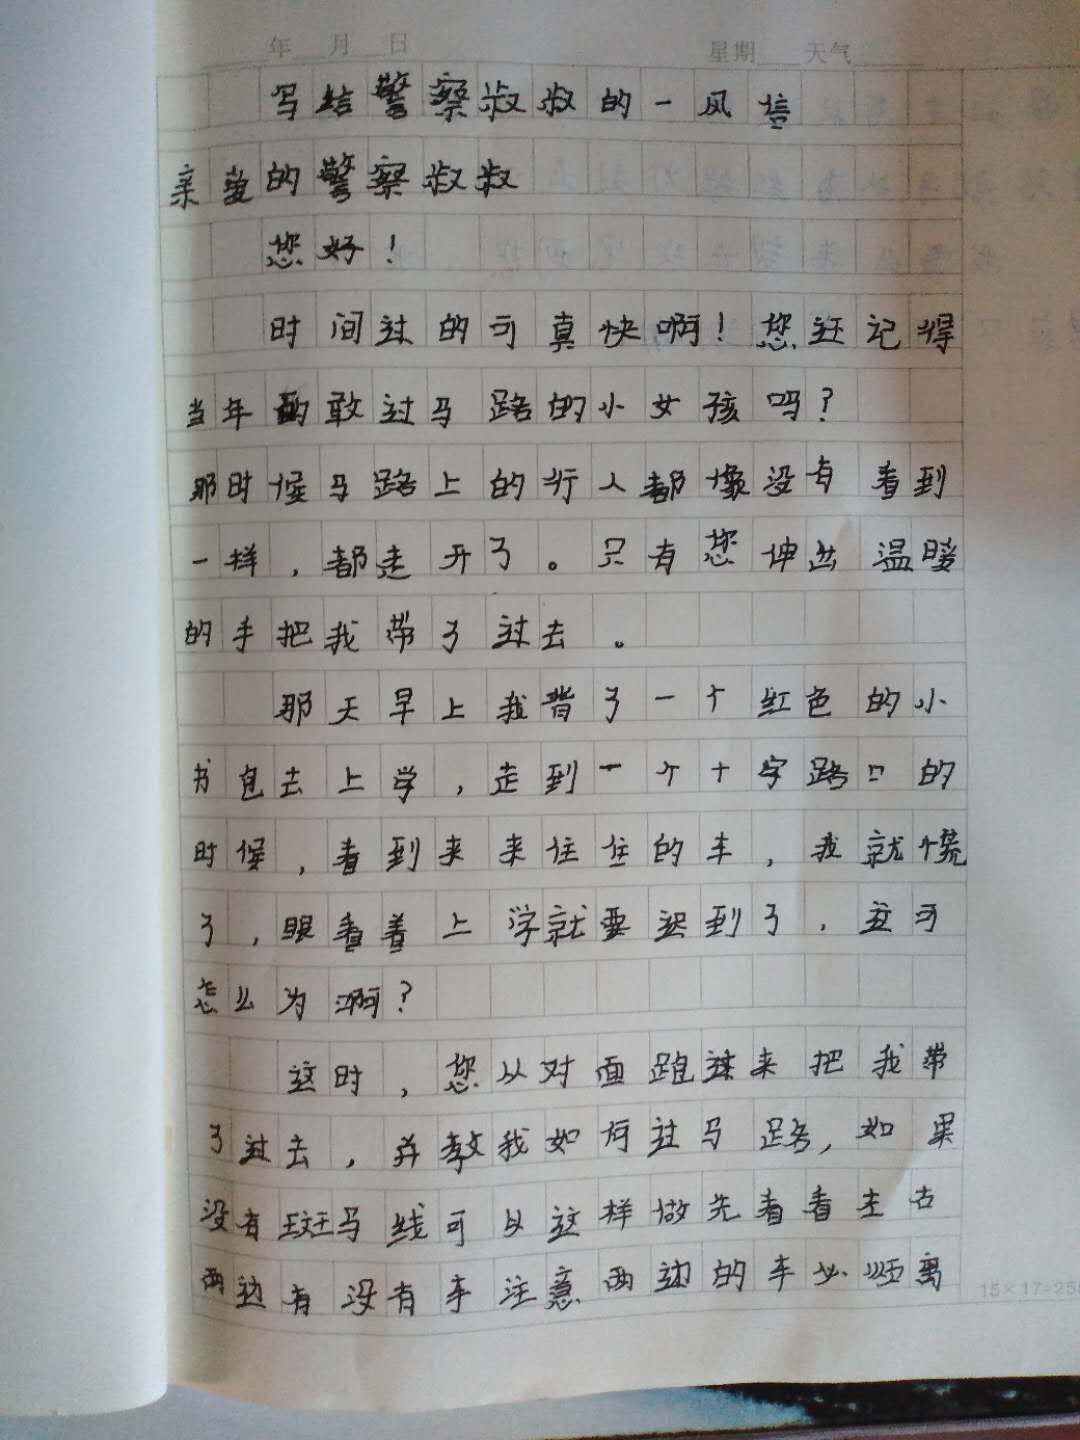 年 月 日 星期 天气
写给警察叔叔的一风信
亲爱的警察叔叔
您好！
时间过的可真快啊！您还记得
当年不敢过马路的小女孩吗？
那时候马路上的行人都像没有看到
一样，都走开了。只有您伸出温暖
的手把我带了过去。
那天早上我背了一个红色的小
书包去上学，走到一个十字路口的
时候，看到来来住住的车，我就慌
了，眼看着上学就要迟到了，这可
怎么为啊？
这时，您从对面跑过来把我带
了过去，并教我如何过马路，如果
没有斑马线可以这样做先看看左右
两边有没有车注意两边的车必须离
15×17=255